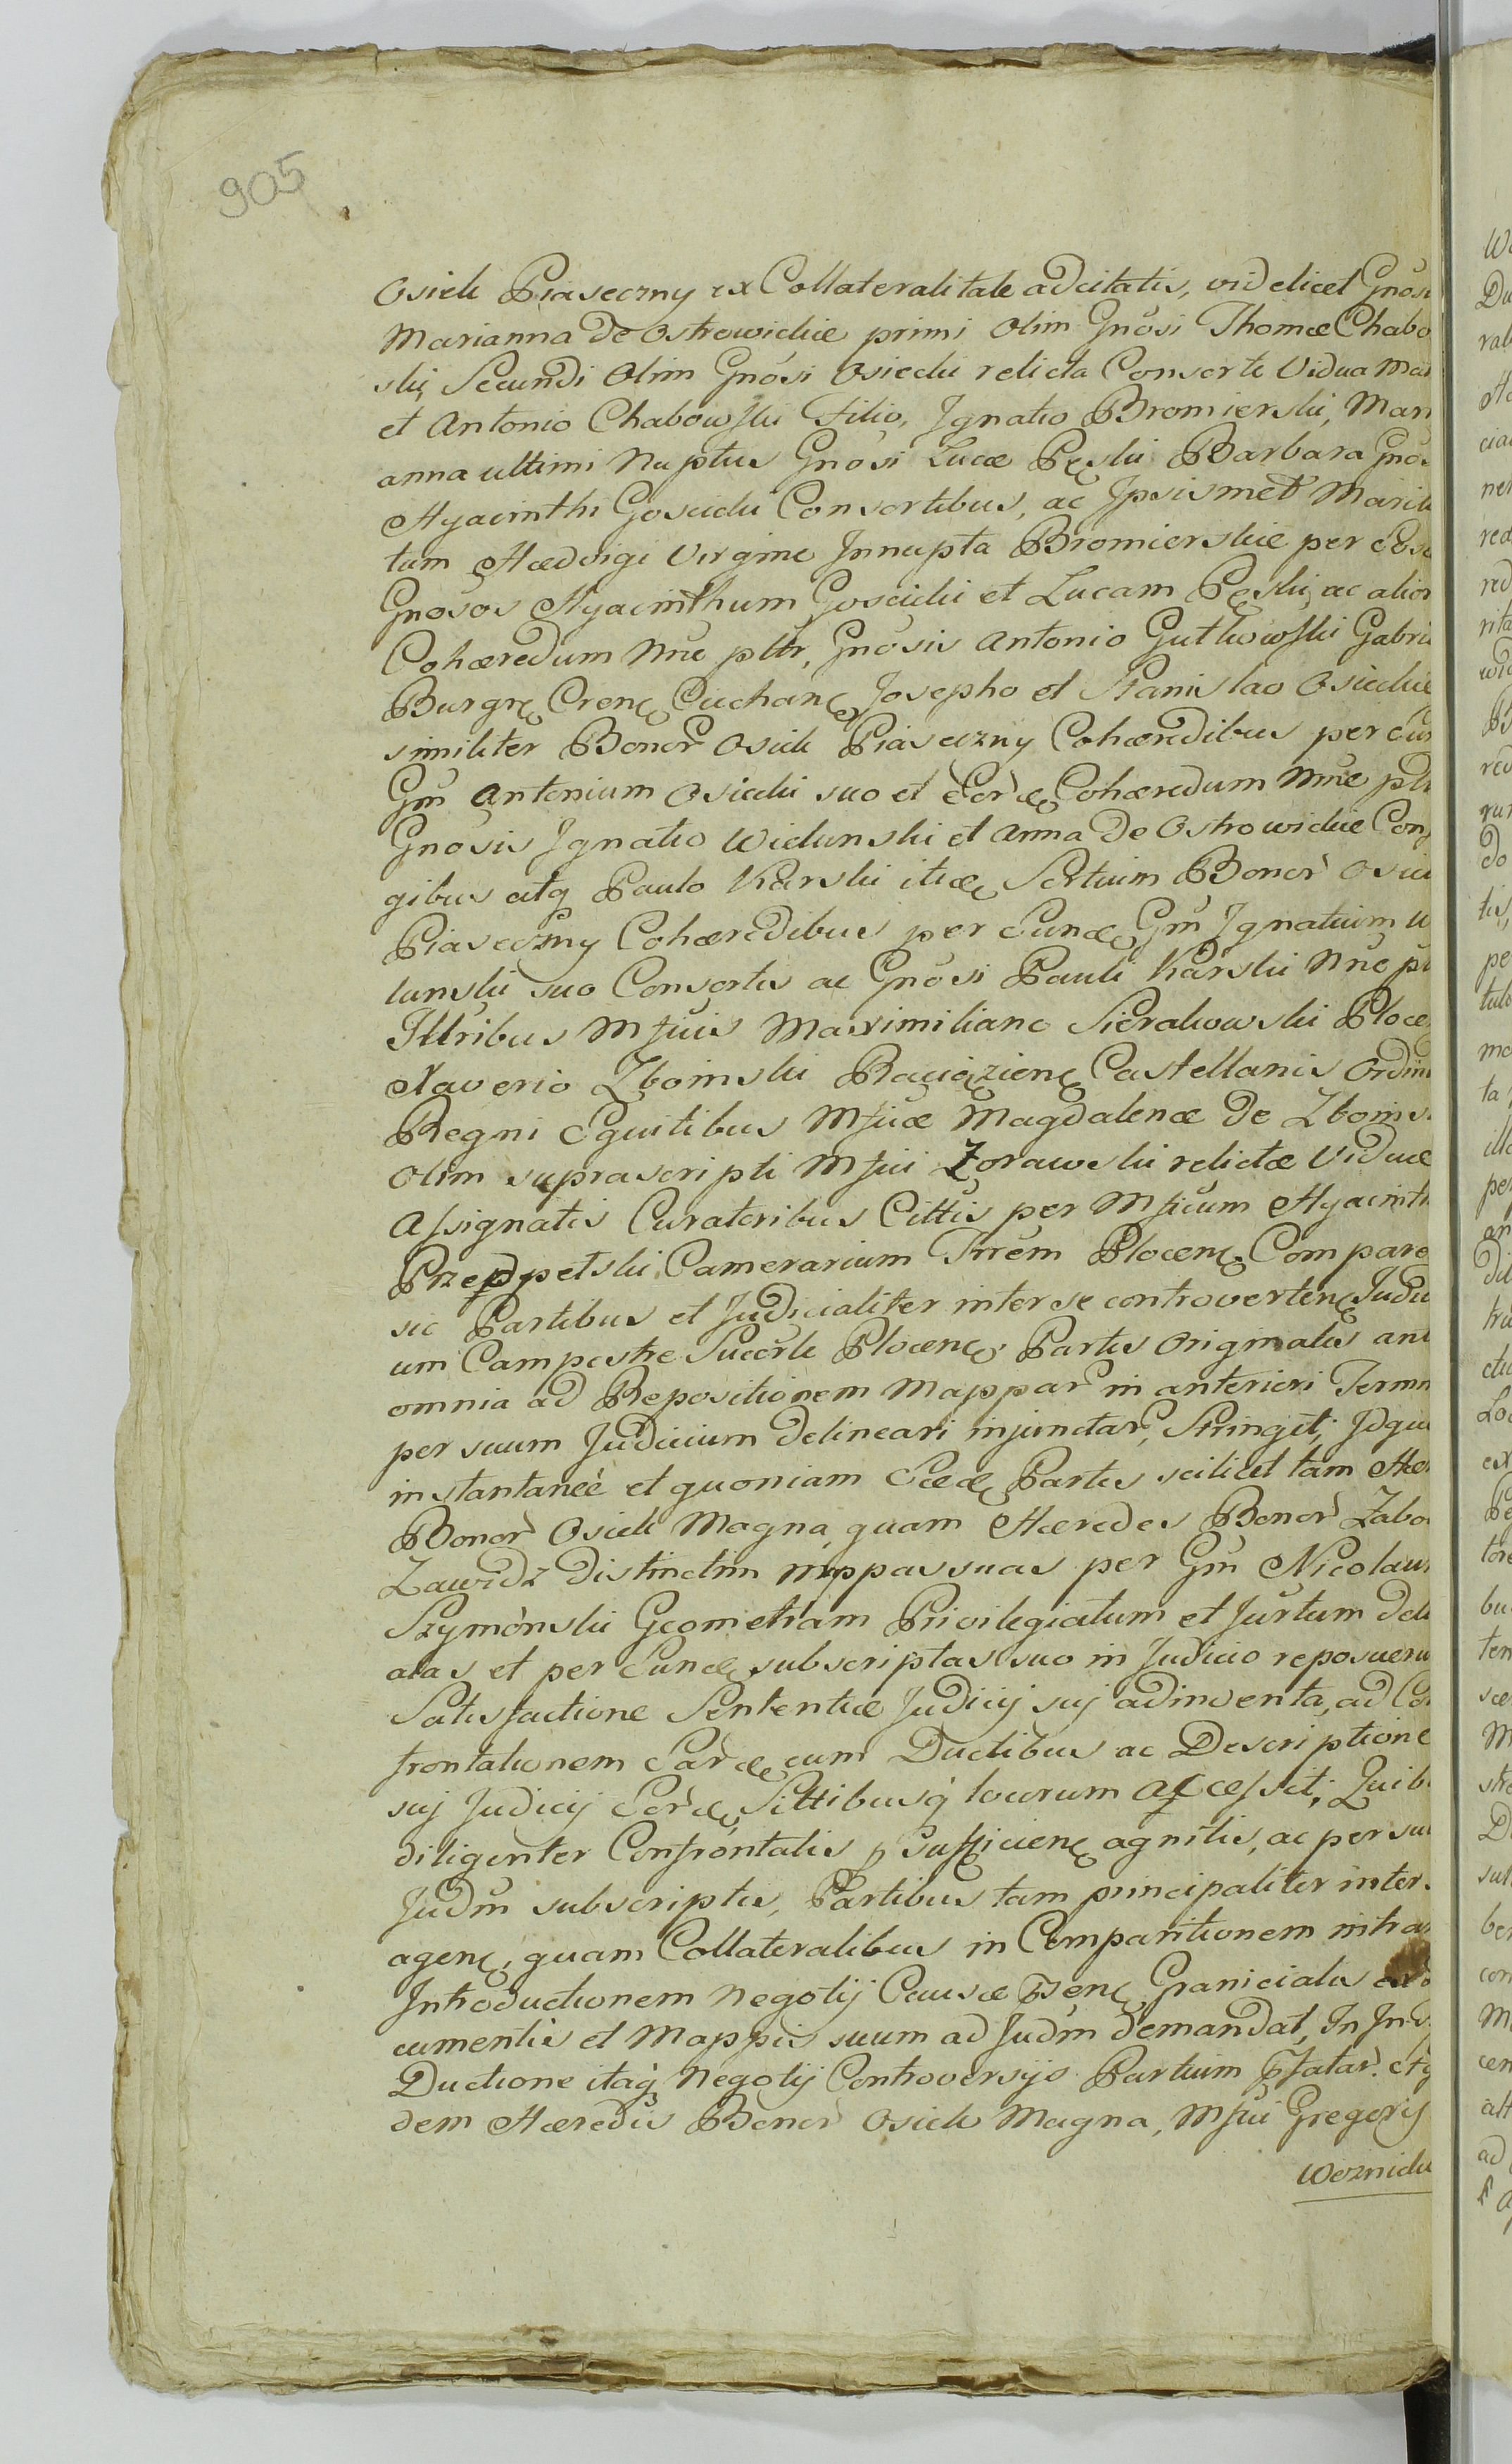 905
Osiek Piaseczny ex Collateralitate adcitatis, videlicet Gnosa
Marianna de Ostrowickie primi olim Gnosi Thomæ Chabo
ski, Secundi olim Gnosi Osiecki relicta Consorte Vidua Mat
et Antonio Chabowski Filio, Ignatio Bromierski, Mari
anna ultimi Nuptus Gnosi Lucæ Pęski Barbara Gno
Hyacinthi Goscicki Consortibus, ac Ipsismet Marit
tam Hædvigi Virgine Innupta Bromierskie per Eos
Gnosos Hyacinthum Goscicki et Lucam Pęski, ac alior
Cohæredum Nne pltr, Gnosis Antonio Gutkowski Gabrie
Burgrę Crenę Ciechanę Josepho et Stanislao Osieckie
similiter Bonor Osiek Piaseczny Cohæredibus per eun
Gm Antonium Osiecki suo et Eordæ Cohæredum Nne plt
Gnosis Ignatio Wielunski et Anna de Ostrowickie Conj
gibus atq Paulo Karski itidæ Sortium Bonor Osiek
Piaseczny Cohæredibus per Eundæ Gm Ignatium W
lunski suo Consortis ac Gnosi Pauli Karski Nne pl
Illribus Mficis Maximiliano Sierakowski Ploce
Xaverio Zboinski Raciązienę Castellanis Ordin
Regni Equitibus Mficæ Magdalenæ de Zboins
Olim suprascripti Mfici Żorawski relictæ Viduæ
Assignatis Curatoribus Cittis per Mficum Hyacinth
Przedpełski Camerarium Trrem Plocenę Compare
sic Partibus et Judicialiter inter se controvertenę Judici
um Campestre Succrle Plocenę Partes Originales ant
omnia ad Repositionem Mappar in anteriori Termn
per suum Judicium delineari injunctar, Stringit; Idque
instantaneé et quoniam Eædæ Partes scilicet tam Hær
Bonor Osiek Magna, quam Hæredes Bonor Zabo
Zawidz distinctim mppas suas per Gm Nicolaum
Szymónski Geometram Privilegiatum et Jurtum deli
atas et per Eundæ subscriptas suo in Judicio reposueru
Satisfactione Sententiæ Judicij sui adinventa, ad Con
frontationem Eardæ cum Ductibus ac Descriptione
suj Judicij Eordæ, Sittibusq locorum accessit; Quib
diligenter Confrontatis p sufficienę agnitis, ac per su
Judm subscriptis, Partibus tam principaliter inter
agenę, quam Collateralibus in Comparitionem intra
Introductionem Negotij Causæ psenę Granicialis
cumentis et Mappis suum ad Judm demandat, In In
Ductione itaq Negotij Controversijs Partium pfatar. et q
dem Hæredis Bonor Osiek Magna, Mfici Gregorij
Woznicki